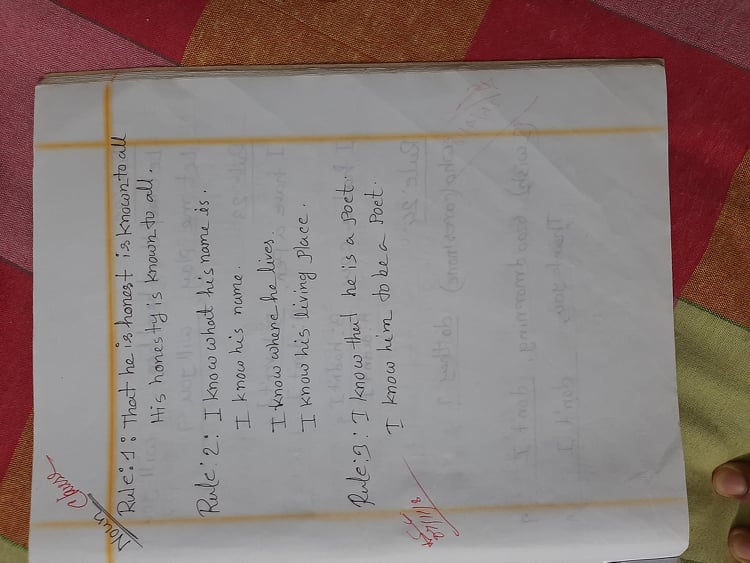 Noun Clause
Rule: 1: That he is honest is known to all
His honesty is known to all.
Rule: 2: I know what his name is.
I know his name.
I know where he lives.
I know his living place.
Rule: 3: I know that he is a poet.
I know him to be a Poet.